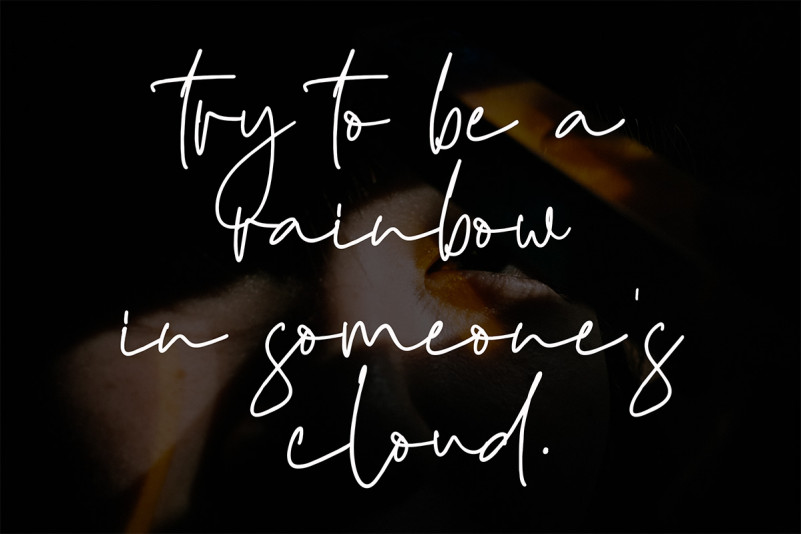 try to be a
rainbow
in someone's
cloud.